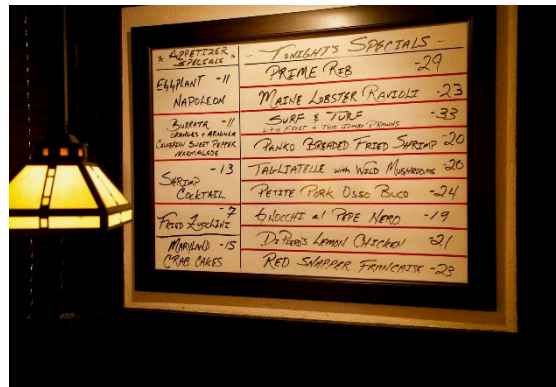 * APPETIZER *
SPECIALS
EGGPLANT -11
NAPOLEON
BURRATA -11
ORANGES + ARUGULA
CALABRIAN SWEET PEPPER
MARMALADE
SHRIMP -13
COCKTAIL
FRIED ZUCCHINI -7
MARYLAND -15
CRAB CAKES
- TONIGHT'S SPECIALS -
PRIME RIB -29
MAINE LOBSTER RAVIOLI -23
SURF & TURF -33
FILET + TWO JUMBO PRAWNS
PANKO BREADED FRIED SHRIMP -20
TAGLIATELLE WITH WILD MUSHROOMS -20
PETITE PORK OSSO BUCO -24
GNOCCHI al PEPE NERO -19
DIPIERO'S LEMON CHICKEN -21
RED SNAPPER FRANCAISE -23